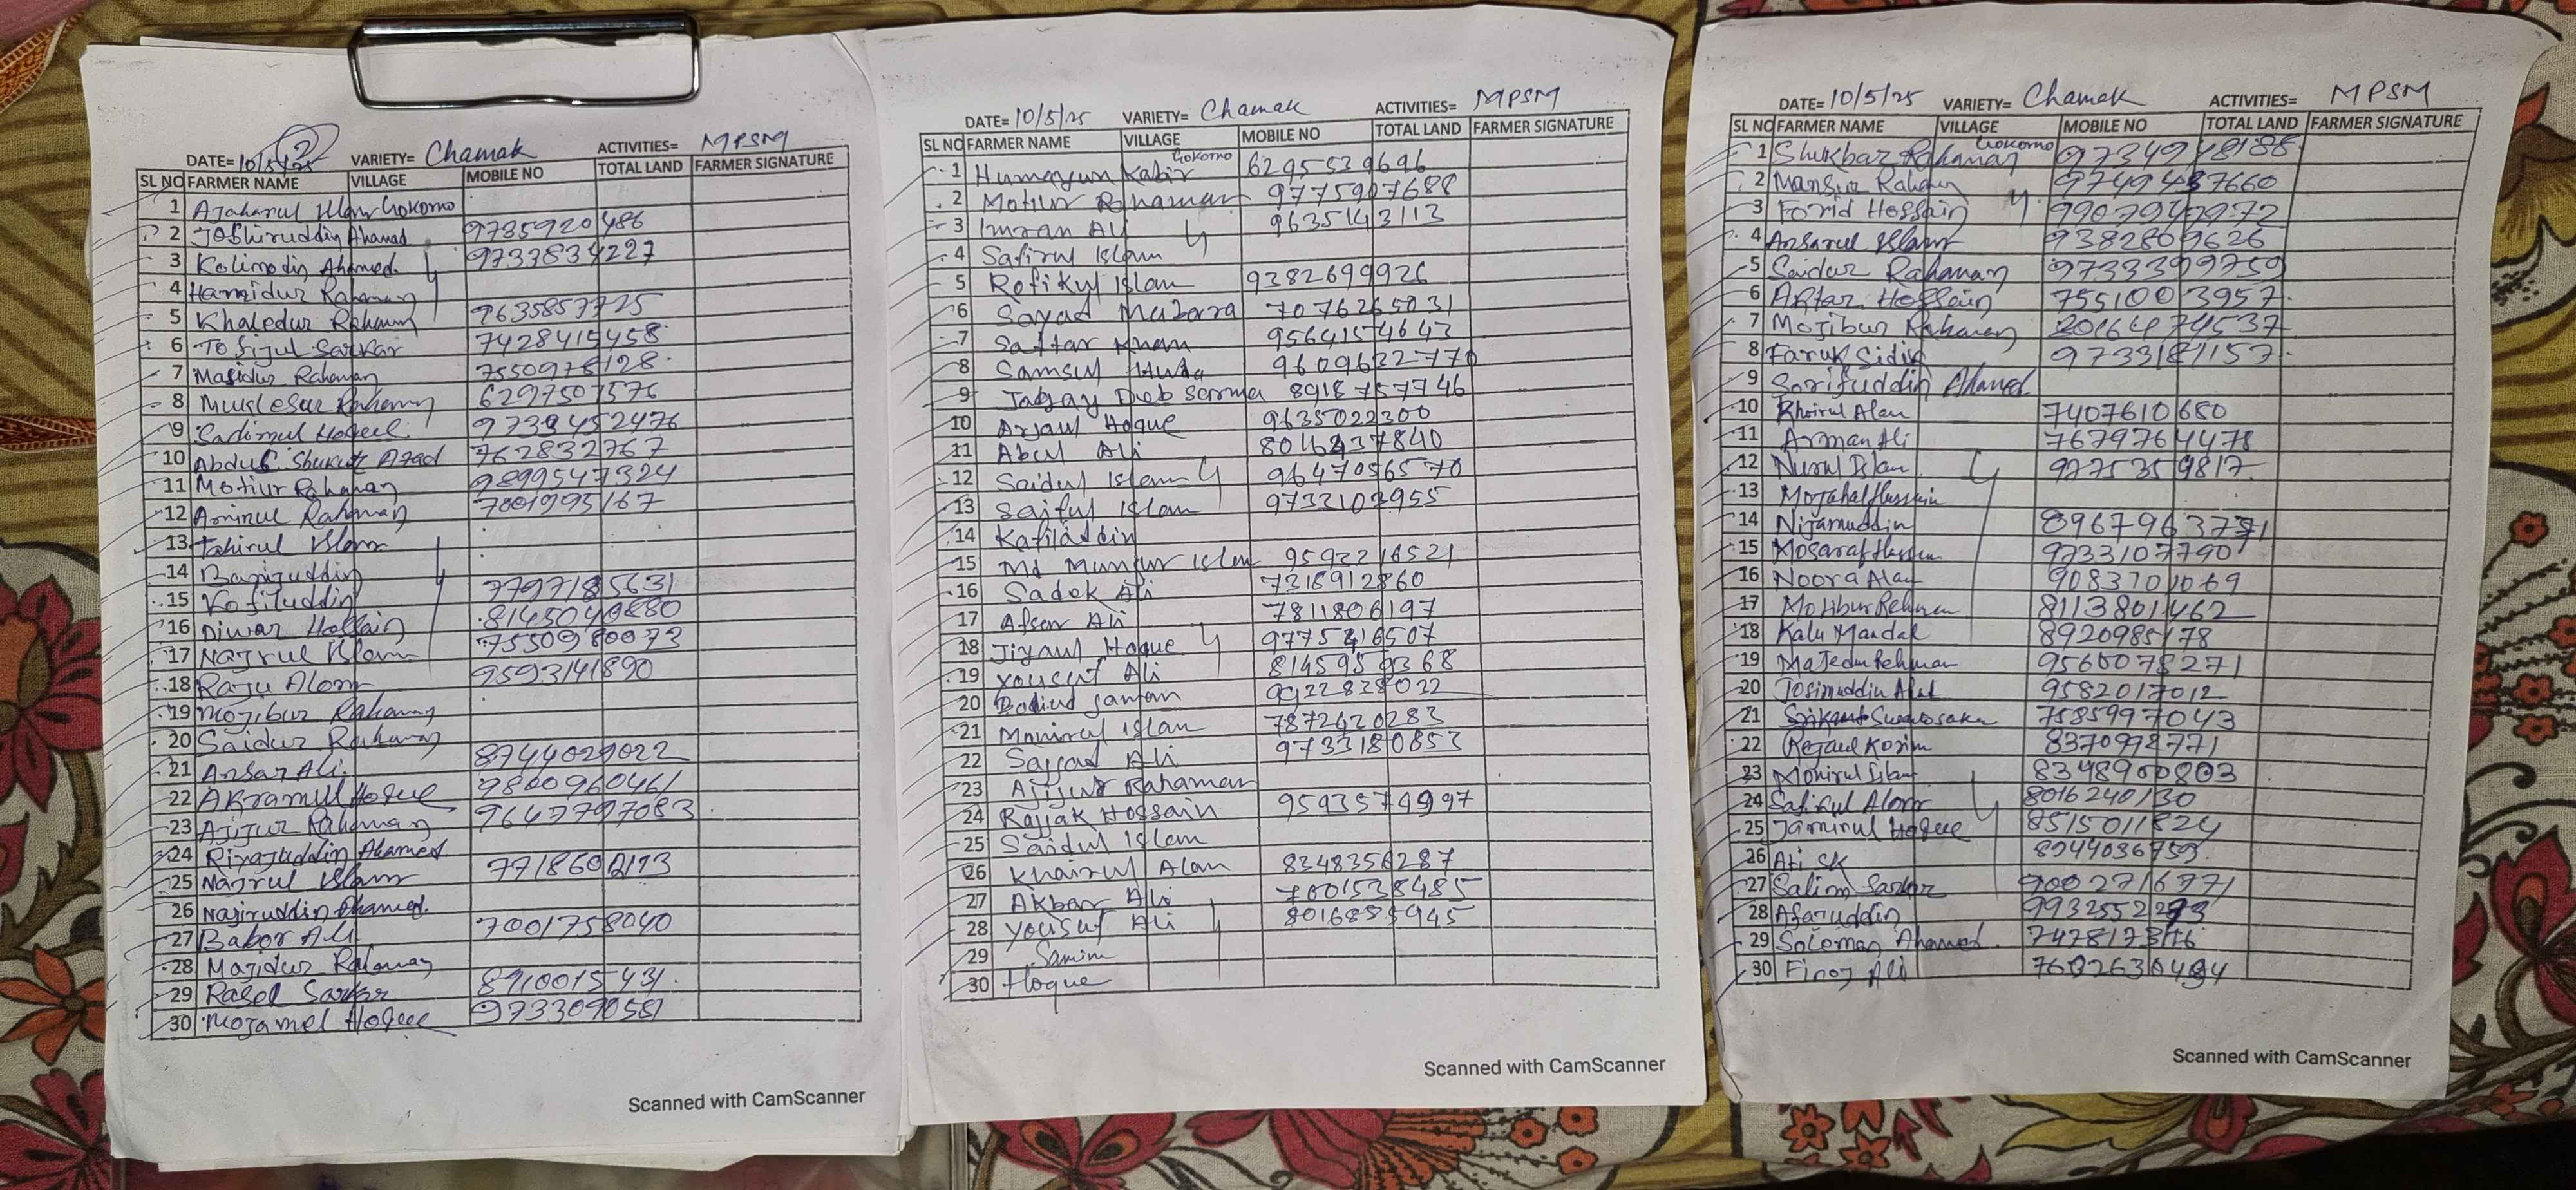 DATE= 10/5/25 VARIETY= Chamak ACTIVITIES= MPSM
SL NO FARMER NAME VILLAGE MOBILE NO TOTAL LAND FARMER SIGNATURE
1 Ajaharul Islam Gokomo
2 Joshiruddin Ahamad 9735920486
3 Kolimodin Ahamed. 9733834227
4 Hamidur Rahaman
5 Khaledur Rahaman 9635857725
6 Tofijul Sarkar 7428415458
7 Masidur Rahaman 7550978128
8 Muslesur Rahaman 6297507576
9 Sadimul Hoque
10 Abdul Shukur Azad 762832767
11 Motiur Rahaman 9899547324
12 Aminul Rahaman 7001993167
13 Tahirul Islam
14 Bajijuddin
15 Kofiluddin 7797185631
16 Diwar Hossain 8145040880
17 Najrul Islam 7550980073
18 Raju Alom 9593141890
19 Mojibur Rahaman
20 Saidur Rahaman
21 Ansar Ali. 8744029022
22 Akramul Hoque 9800960461
23 Ajijur Rahaman 9647797083
24 Riyajuddin Ahamed
25 Najrul Islam
26 Najiruddin Ahamed.
27 Babor Ali 7001758040
28 Majidur Rahaman
29 Rasel Sarkar 8910015431
30 Mojamel Hoque 9733090581
Scanned with CamScanner
DATE= 10/5/25 VARIETY= Chamak ACTIVITIES= MPSM
SL NO FARMER NAME VILLAGE MOBILE NO TOTAL LAND FARMER SIGNATURE
1 Humayun Kabir Gokomo 6295539696
2 Motiur Rahaman 9775907688
3 Imran Ali 9635143113
4 Safirul Islam
5 Rofikul Islam 9382699926
6 Sayad Mabara 7076265031
7 Sattar Khan 9564154643
8 Samsul Huda 9609632770
9 Jabgay Deb Sarma 8918757746
10 Arjaul Hoque 9635022300
11 Abul Ali 8016237840
12 Saidul Islam 9647056570
13 Saiful Islam 9733103955
14 Kafiladdin
15 Md Munjur Islam 9593216521
16 Sadek Ali 7318912860
17 Afsar Ali 7811806197
18 Jiyaul Hoque 9775216507
19 Yousuf Ali 8145959368
20 Badiud Jaman 9932838022
21 Manirul Islam 7872420283
22 Sajjad Ali 9733180853
23 Ajijur Rahaman
24 Rajjak Hossain 9593574997
25 Saidul Islam
26 Khairul Alam 8348356287
27 Akbar Ali 7001538485
28 Yousuf Ali 8016855945
29 Samim
30 Hoque
Scanned with CamScanner
DATE= 10/5/25 VARIETY= Chamak ACTIVITIES= MPSM
SL NO FARMER NAME VILLAGE MOBILE NO TOTAL LAND FARMER SIGNATURE
1 Shukbar Rahaman Gokomo 9734948188
2 Mansur Rahaman
3 Forid Hossain
4 Ansarul Islam 9382809626
5 Saidur Rahaman 9733399759
6 Aftar Hossain 7551003957
7 Mojibur Rahaman
8 Faruk Sidik 9733181157
9 Sarifuddin Ahamed
10 Khoirul Alam 7407610680
11 Arman Ali 7679764478
12 Nurul Islam 9775359817
13 Mojahal Hussain
14 Nijamuddin
15 Mosaraf Hussain 9733107790
16 Noora Alam 9083701069
17 Motibur Rehman 8113801462
18 Kalu Mandal 8920985178
19 Majedur Rehman 9560078271
20 Josimuddin 9582017012
21 7585997043
22 Rejaul Korim 8370992771
23 Monirul Islam 8348900803
24 Safikul Alom 8016240130
25 Jamirul Hoque 8515011824
26 Ati SK
27 Salim Sarkar 9002716771
28 Afajuddin
29 Soleman Ahamed.
30 Firoj Ali
Scanned with CamScanner